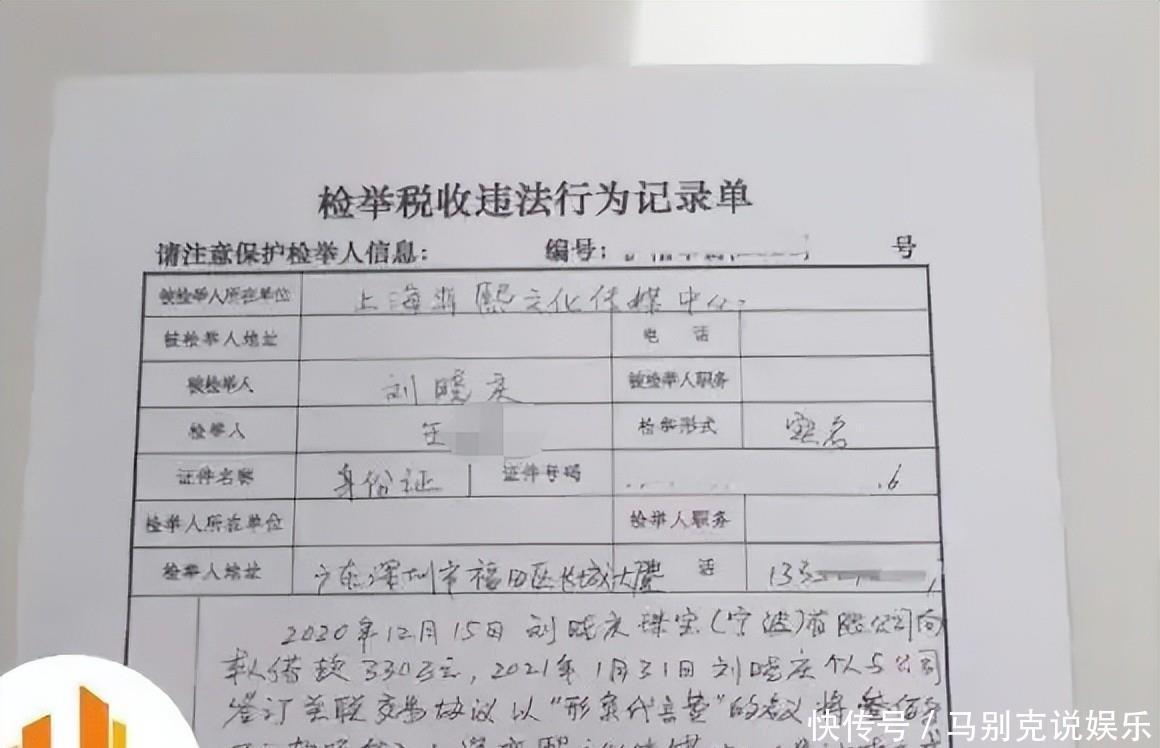 检举税收违法行为记录单
请注意保护检举人信息: 编号: 号
被检举人所在单位 上海 熙文化传媒中心
被检举人地址 电 话
被检举人 刘晓庆 被检举人职务
检举人 王 检举形式 实名
证件名称 身份证 证件号码 6
检举人所在单位 检举人职务
检举人地址 广东深圳市福田区长城大厦 话 13
2020年12月15日刘晓庆珠宝(宁波)有限公司向
本人借款330万元,2021年1月31日刘晓庆个人与公司
签订关联交易协议以“形象代言费”的名义将
快传号/马别克说娱乐